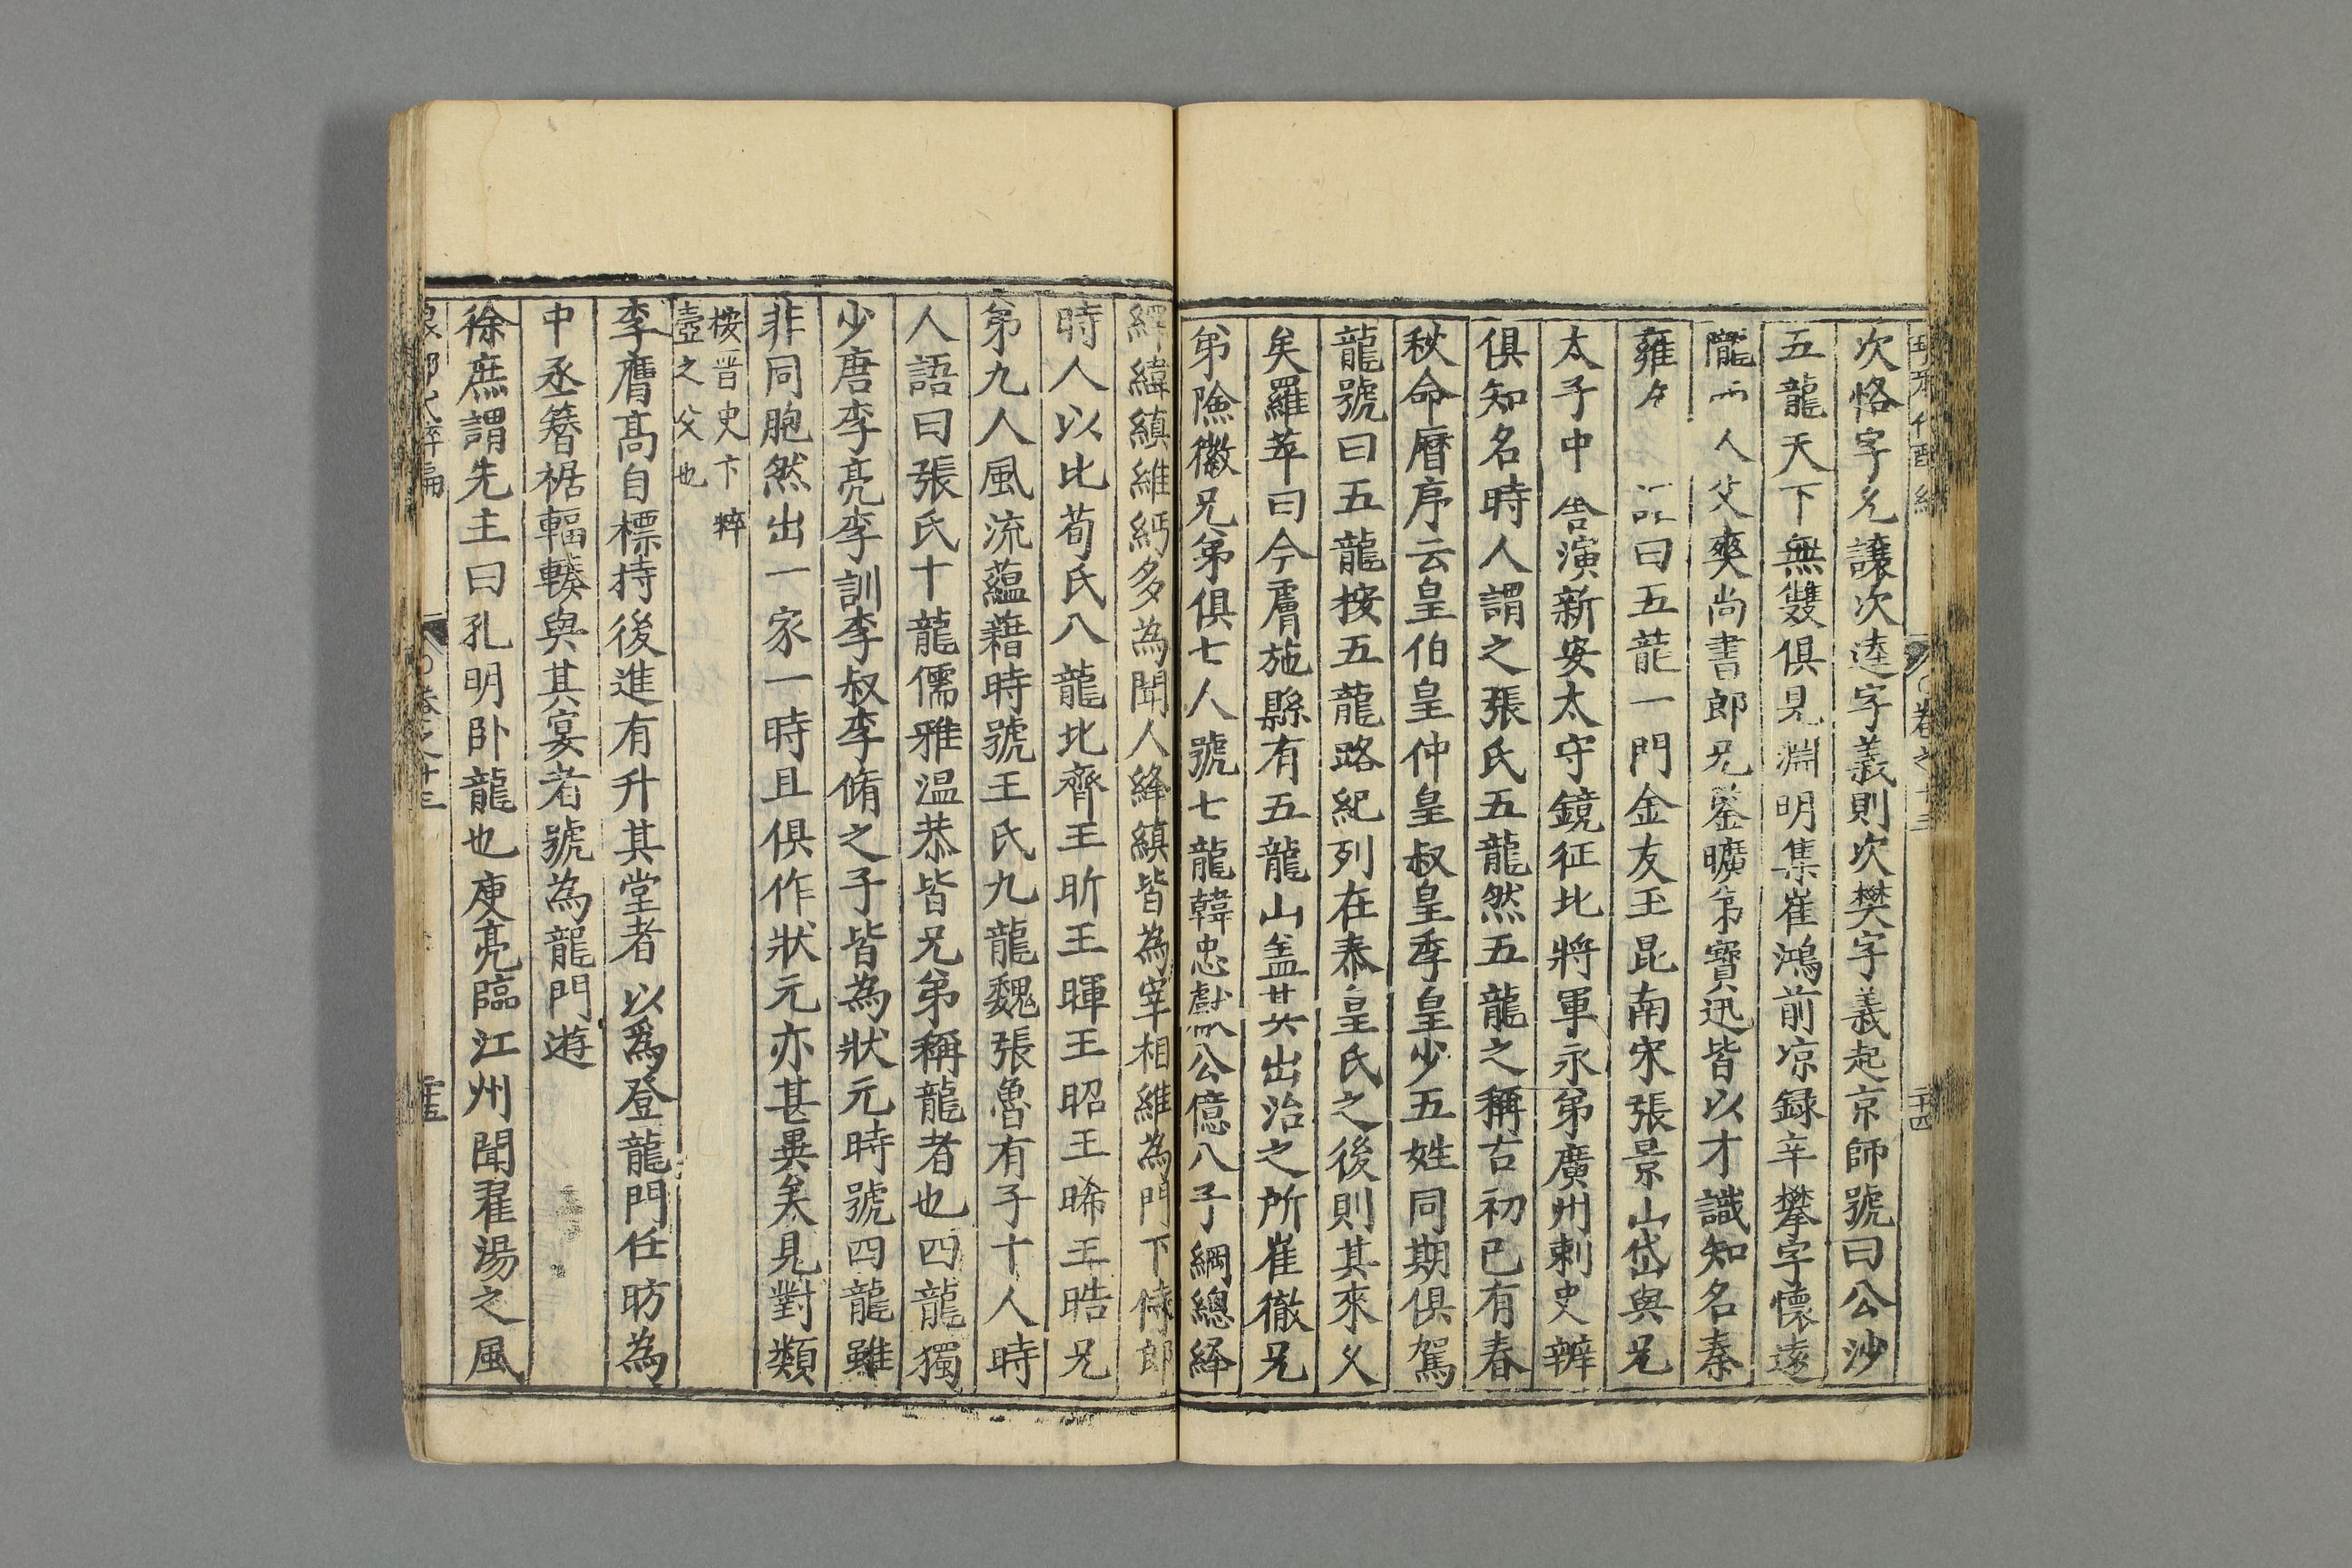 次恪字允讓次逵字義則次樊字義起京師號曰公沙
五龍天下無雙俱見淵明集崔鴻前凉録辛攀字懷遠
隴西人父奭尚書郎兄鑒曠弟寶迅皆以才識知名秦
雍 曰五龍一門金友玉昆南宋張景山岱與兄
太子中舍演新安太守鏡征北將軍永弟廣州刺史辨
俱知名時人謂之張氏五龍然五龍之稱古初已有春
秋命曆序云皇伯皇仲皇叔皇季皇少五姓同期俱駕
龍號曰五龍按五龍路紀列在泰皇氏之後則其來乆
矣羅苹曰今膚施縣有五龍山盖其出治之所崔徹兄
弟險徽兄弟俱七人號七龍韓忠獻公億八子綱總絳
繹緯縝維緬多為聞人絳縝皆為宰相維為門下侍郎
時人以比荀氏八龍北齊王昕王暉王昭王晞王晧兄
弟九人風流蘊藉時號王氏九龍魏張魯有子十人時
人語曰張氏十龍儒雅温恭皆兄弟稱龍者也四龍獨
少唐李亮李訓李叔李脩之子皆為狀元時號四龍雖
非同胞然出一家一時且俱作狀元亦甚異矣見對類
按晋史卞粹
壼之父也
李膺髙自標持後進有升其堂者以爲登龍門任昉為
中丞簪裾輻輳與其宴者號為龍門遊
徐庶謂先主曰孔明卧龍也庾亮臨江州聞翟湯之風
卷之十三